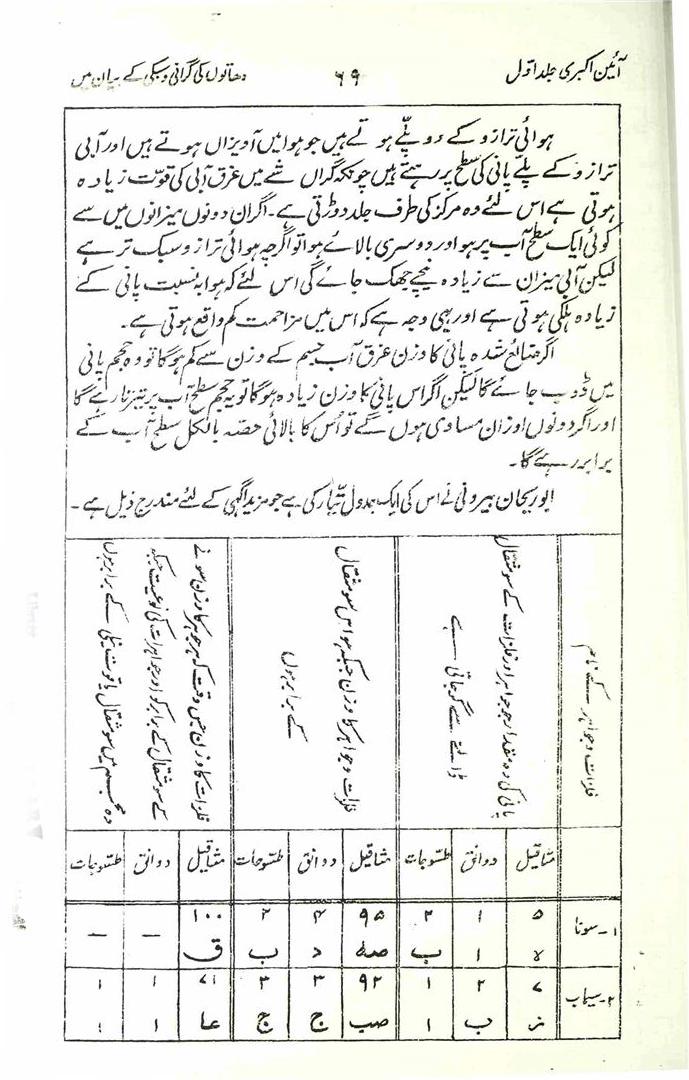 آئین اکبری جلد اوّل ۶۹ دھاتوں کی گرانی و سبکی کے بیان میں
ہوائی ترازو کے دو پلّے ہوتے ہیں جو ہوا میں آویزاں ہوتے ہیں اور آبی
ترازو کے پلے پانی کی سطح پر رہتے ہیں چونکہ گراں شے میں غرق آبی کی قوّت زیادہ
ہوتی ہے اس لئے وہ مرکز کی طرف جلد دوڑتی ہے۔ اگر ان دونوں میزانوں میں سے
کوئی ایک سطح آب پر ہو اور دوسری بالائے ہوا تو اگرچہ ہوائی ترازو سبک تر ہے
لیکن آبی میزان سے زیادہ نیچے جھک جائے گی اس لئے کہ ہوا بہ نسبت پانی کے
زیادہ ہلکی ہوتی ہے اور یہی وجہ ہے کہ اس میں مزاحمت کم واقع ہوتی ہے۔
اگر ضائع شدہ پانی کا وزن غرق آب جسم کے وزن سے کم ہوگا تو وہ حجم پانی
میں ڈوب جائے گا لیکن اگر اس پانی کا وزن زیادہ ہوگا تو یہ حجم سطح آب پر تیرتا رہے گا
اور اگر دونوں اوزان مساوی ہوں گے تو اُس کا بالائی حصّہ بالکل سطح آب کے
برابر رہے گا۔
ابو ریحان بیرونی نے اس کی ایک جدول تیّار کی ہے جو مزید آگہی کے لئے مندرج ذیل ہے۔
فلزات و جواہر کے نام
پانی کی وہ مقدار جو جواہر اور فلزات کے سو مثقال
ڈالنے سے گر جاتی ہے
فلزات و جواہر کا وزن جبکہ ہوا میں سو مثقال
کے برابر ہوں
فلزات کا وزن جس وقت کہ ہر جوہر کا وزن سونے
کے سو مثقال کے برابر ہو اور جواہرات کی نوعیت جبکہ
وہ حجم میں سو مثقال یاقوت نیلی کے برابر ہوں
مثاقیل دوانق طسوجات مثاقیل دوانق طسوجات مثاقیل دوانق طسوجات
۱۔ سونا ۵ ۱ ۲ ۹۵ ۴ ۲ ۱۰۰ — —
ہ ا ب صہ د ب ق
۲۔ سیماب ۷ ۲ ۱ ۹۲ ۳ ۳ ۷۱ ۱ ۱
ز ب ا صب ج ج عا ا ا